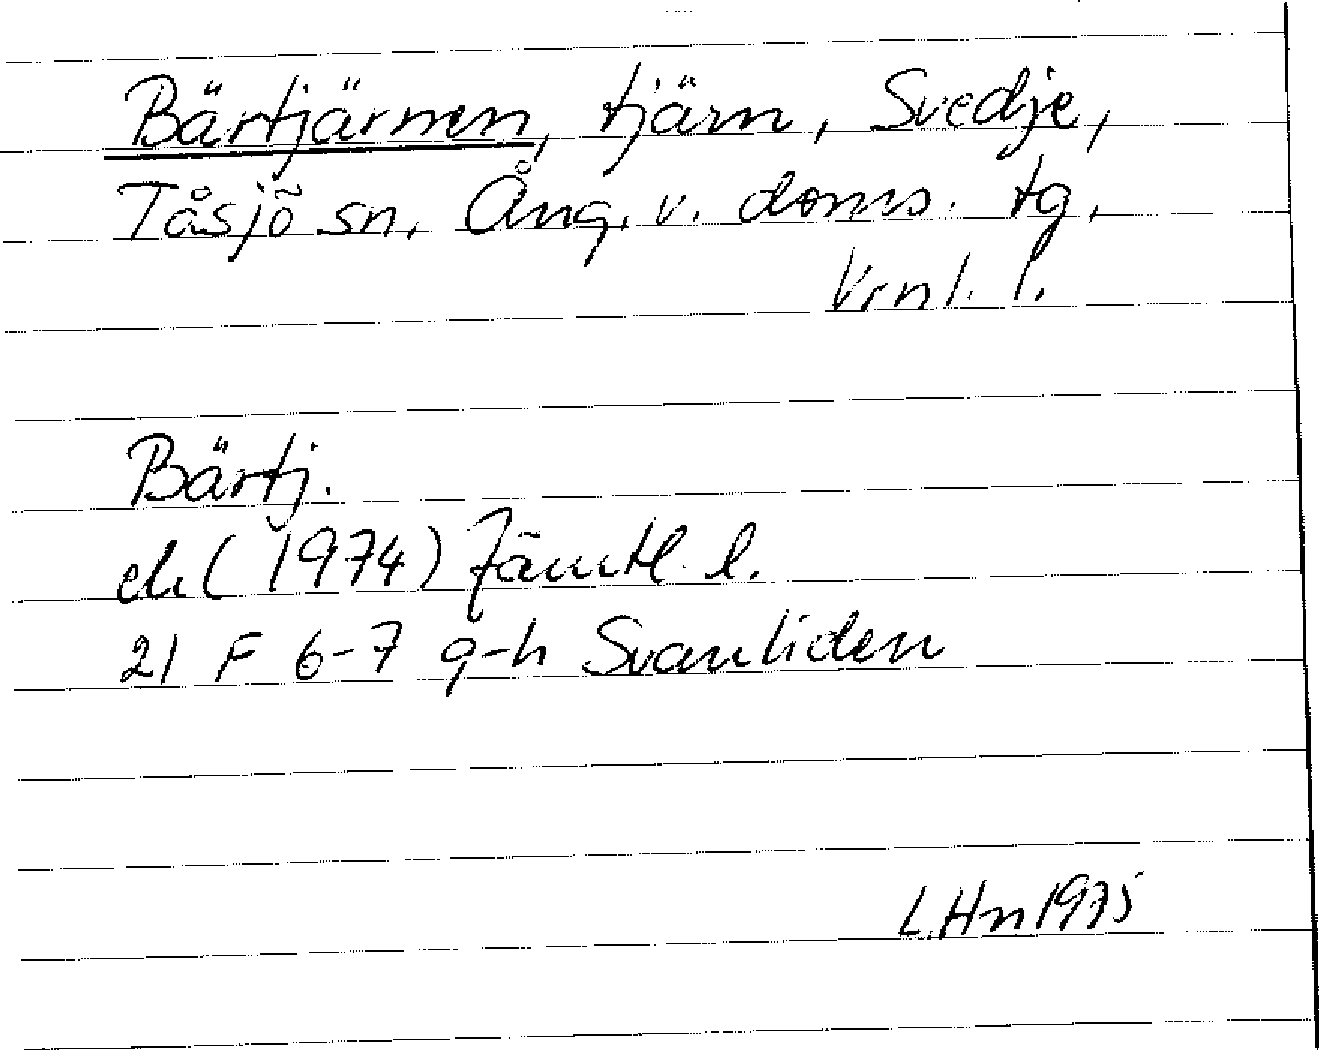 Bärtjärnen, tjärn, Svedje,
Tåsjö sn, Ång. v. doms. tg,
Vrnl. l.
Bärtj.
ek (1974) Jämtl. l.
21 F 6-7 g-h Svanliden
L.Hn 1975